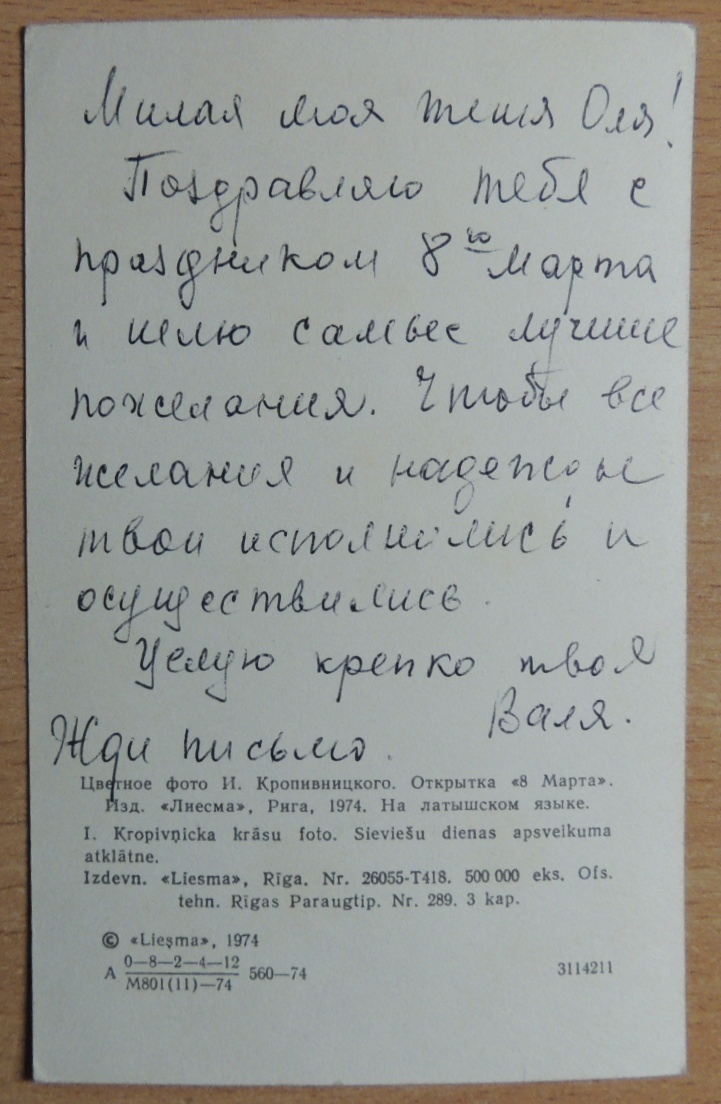 Милая моя тетя Оля!
Поздравляю тебя с
праздником 8го Марта
и шлю самые лучшие
пожелания. Чтобы все
желания и надежды
твои исполнились и
осуществились.
Целую крепко твоя
Валя.
Жди письмо.
Цветное фото И. Кропивницкого. Открытка «8 Марта».
Изд. «Лиесма», Рига, 1974. На латышском языке.
I. Kropivņicka krāsu foto. Sieviešu dienas apsveikuma
atklātne.
Izdevn. «Liesma», Rīga. Nr. 26055-T418. 500 000 eks. Ofs.
tehn. Rīgas Paraugtip. Nr. 289. 3 kap.
© «Liesma», 1974
А 0—8—2—4—12 560—74
М801(11)—74
3114211